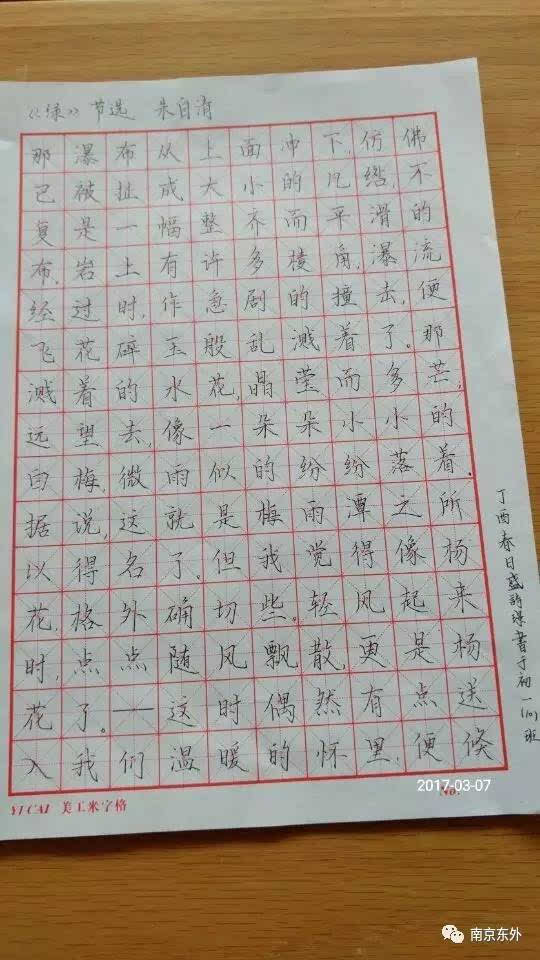 《绿》 节选 朱自清
那瀑布从上面冲下，仿佛
已被扯成大小的几绺，不
复是一幅整齐而平滑的
布。岩上有许多棱角，瀑流
经过时，作急剧的撞击，便
飞花碎玉般乱溅着了。那
溅着的水花，晶莹而多芒，
远望去，像一朵朵小小的
白梅，微雨似的纷纷落着。
据说，这就是梅雨潭之所
以得名了。但我觉得像杨
花，格外确切些。轻风起来
时，点点随风飘散，更是杨
花了。——这时偶然有点送
入我们温暖的怀里，便倏
丁酉春日盛 书于初一(10)班
YI CAI 美工米字格
No:
2017-03-07
南京东外